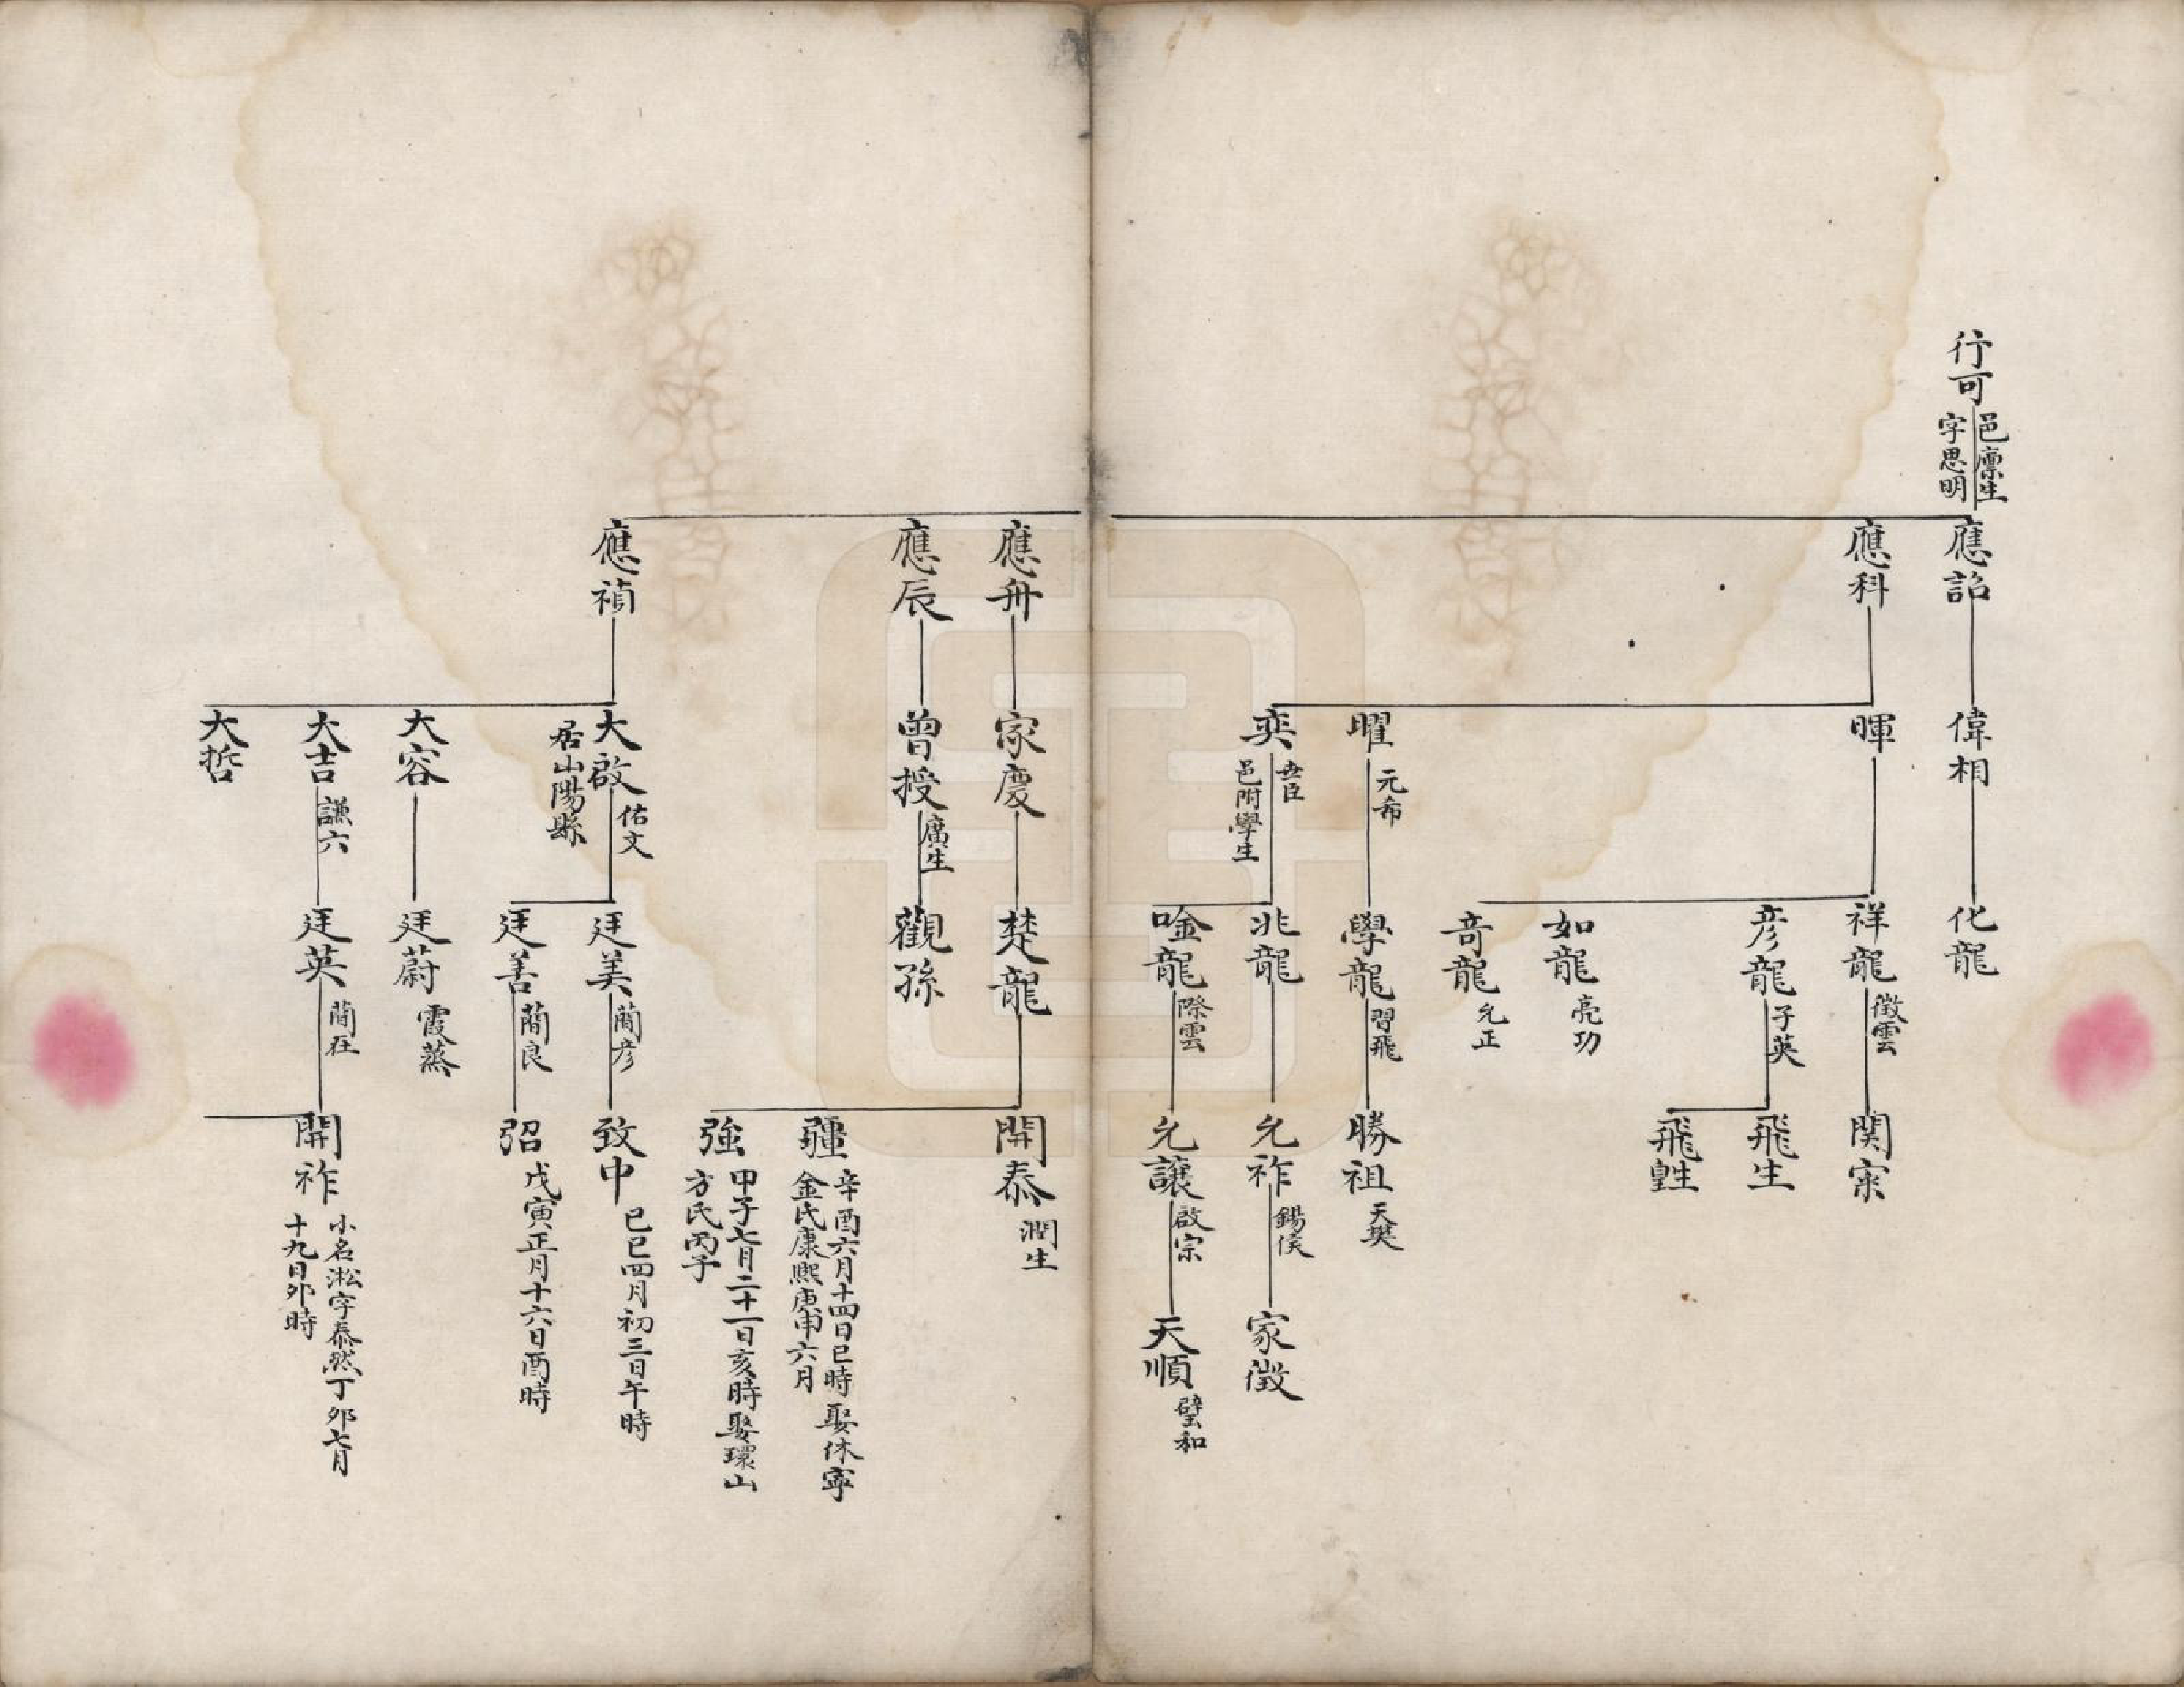 行可
邑廩生
字思明
應詔
偉相
化龍
應科
暉
祥龍
徵雲
関宗
彥龍
子英
飛生
飛
如龍
亮功
奇龍
允正
曜
元希
學龍
習飛
勝祖
天樊
奕
世臣
邑附學生
兆龍
允祚
錫侯
家徵
唫龍
際雲
允讓
啟宗
天順
璧和
應舟
家慶
楚龍
開泰
潤生
疆
辛酉六月十四日巳時娶休寧
金氏康熙庚申六月
強
甲子七月二十一日亥時娶環山
方氏丙子
應辰
曾授
廣生
觀孫
應禎
大啟
佑文
居山陽縣
廷美
蘭彥
致中
己巳四月初三日午時
廷善
蘭良
弨
戊寅正月十六日酉時
大容
廷蔚
霞蒸
大吉
謙六
廷英
蘭在
開祚
小名淞字泰然丁卯七月
十九日卯時
大哲